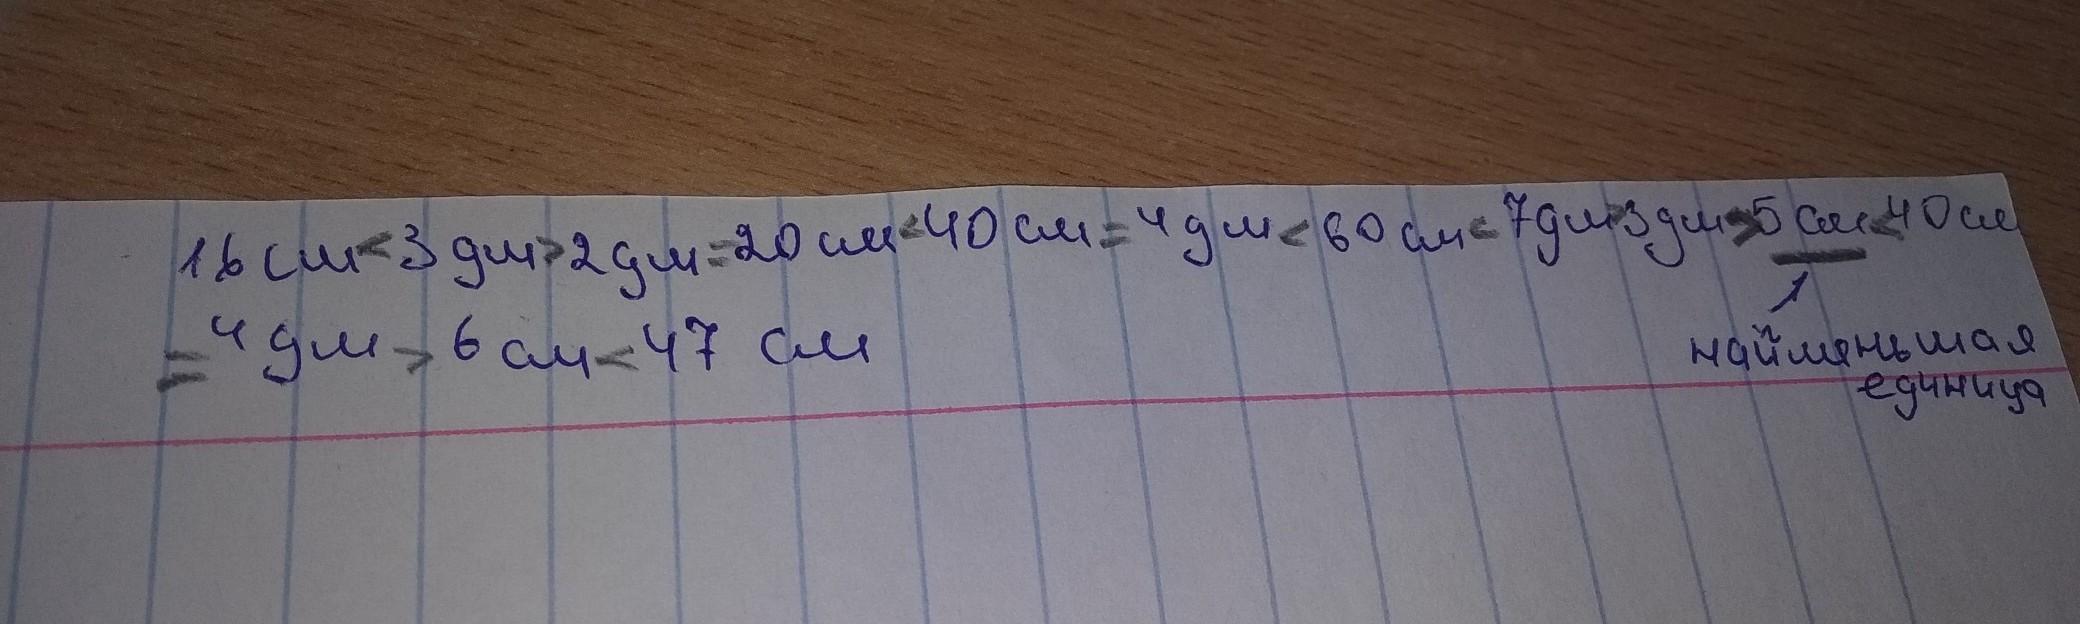 16 см < 3 дм > 2 дм = 20 см < 40 см = 4 дм < 60 см < 7 дм > 3 дм > 5 см < 40 см
= 4 дм > 6 см < 47 см
найменьшая
единица